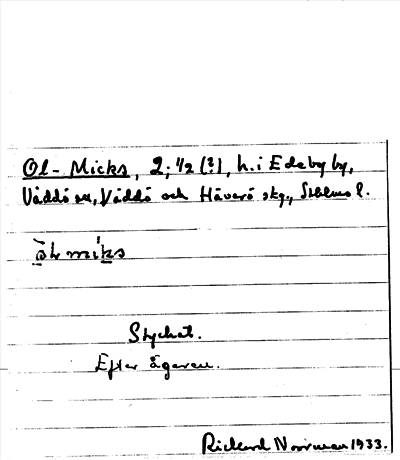 Ol-Micks, 2; 1/2 (?), h. i Edeby by,
Väddö sn, Väddö och Häverö skg., Sthlms l.
Stycket.
Efter ägaren.
Rickard Norrman 1933.